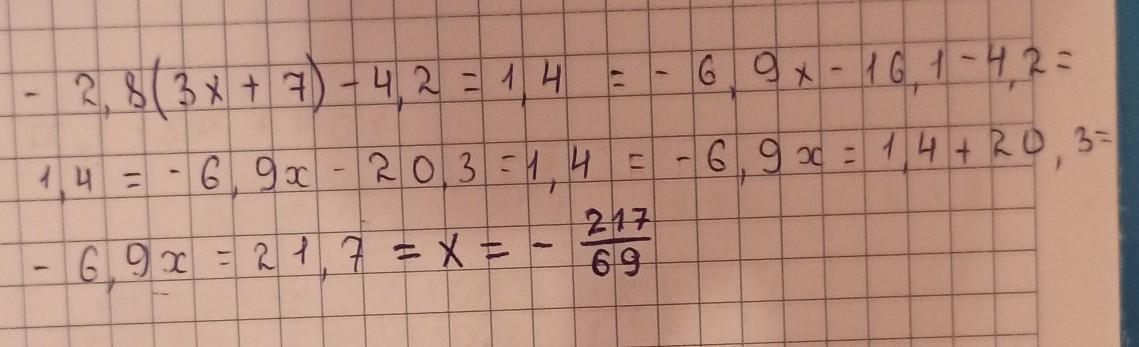 - 2,8(3x + 7) - 4,2 = 1,4 = - 6,9x - 16,1 - 4,2 =
1,4 = - 6,9x - 20,3 = 1,4 = - 6,9x = 1,4 + 20,3 =
- 6,9x = 21,7 = x = - 217/69